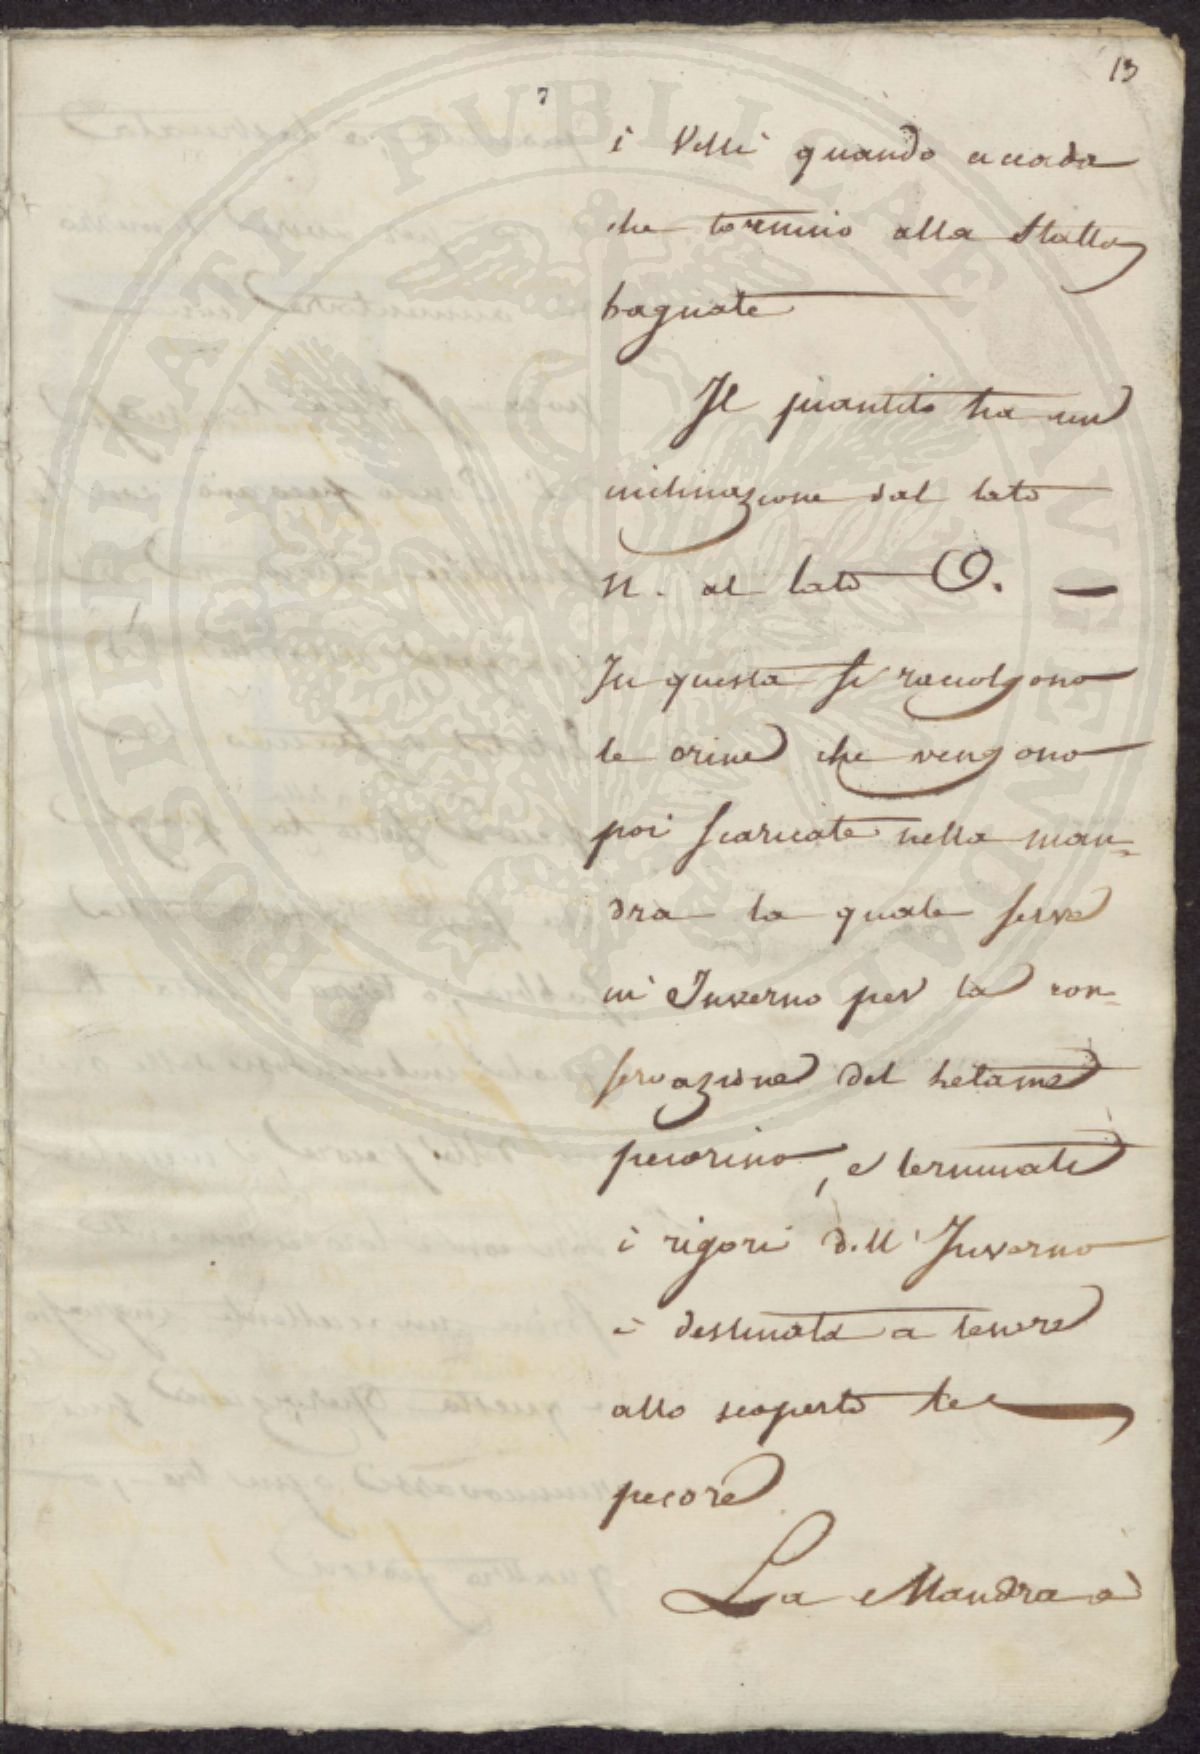 13
7
i Velli quando accada
che tornino alla Stalla
bagnate
Il piantito ha un
inclinazione dal lato
N. al lato O. —
In questa si raccolgono
le orine che vengono
poi scaricate nella man=
dra la quale serve
in Inverno per la con=
servazione del letame
pecorino, e terminati
i rigori dell' Inverno
è destinata a tenere
allo scoperto le
pecore
La Mandra è
PROSPERITATI PUBLICAE AUGENDAE